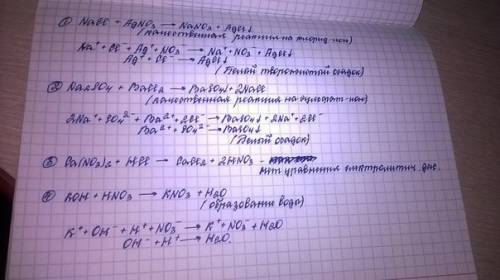 ① NaCl + AgNO3 → NaNO3 + AgCl↓
(качественная реакция на хлорид-ион)
Na⁺ + Cl⁻ + Ag⁺ + NO3⁻ → Na⁺ + NO3⁻ + AgCl↓
Ag⁺ + Cl⁻ → AgCl↓
(белый творожистый осадок)
② Na2SO4 + BaCl2 → BaSO4↓ + 2NaCl
(качественная реакция на сульфат-ион)
2Na⁺ + SO4²⁻ + Ba²⁺ + 2Cl⁻ → BaSO4↓ + 2Na⁺ + 2Cl⁻
Ba²⁺ + SO4²⁻ → BaSO4↓
(белый осадок)
③ Ca(NO3)2 + HCl → CaCl2 + 2HNO3 -
нет уравнения электролитич. дис.
④ KOH + HNO3 → KNO3 + H2O
(образовании воды)
K⁺ + OH⁻ + H⁺ + NO3⁻ → K⁺ + NO3⁻ + H2O
OH⁻ + H⁺ → H2O.